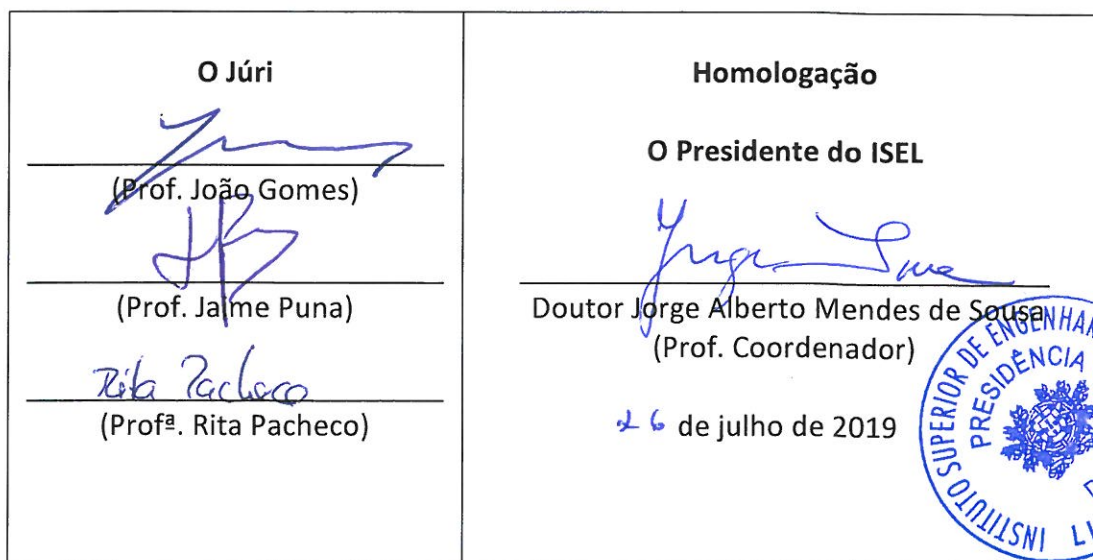 O Júri
(Prof. João Gomes)
(Prof. Jaime Puna)
Rita Pacheco
(Profª. Rita Pacheco)
Homologação
O Presidente do ISEL
Jorge Sousa
Doutor Jorge Alberto Mendes de Sousa
(Prof. Coordenador)
26 de julho de 2019
INSTITUTO SUPERIOR DE ENGENHAR
PRESIDÊNCIA